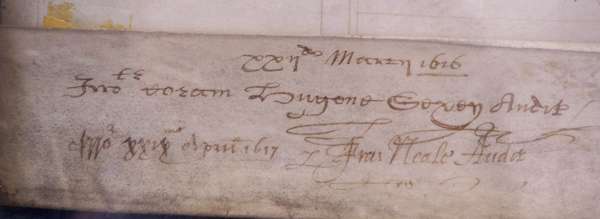 xxij do Marcij 1616
Irrotr coram Hugone Sexey Audit
xxix Aprill 1617 p Fra: Neale Audit